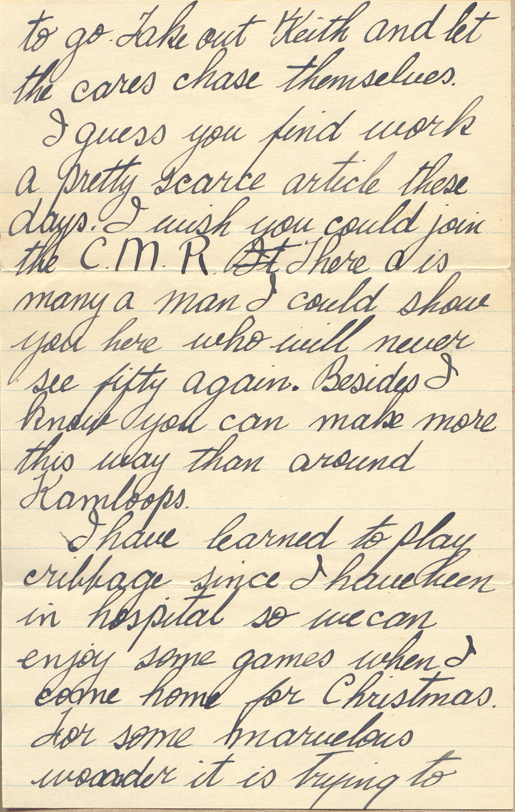 to go. Take out Keith and let
the cares chase themselves.
I guess you find work
a pretty scarce article these
days. I wish you could join
the C.M.R. It There a is
many a man I could show
you here who will never
see fifty again. Besides I
know you can make more
this way than around
Kamloops.
I have learned to play
cribbage since I have been
in hospital so we can
enjoy some games when I
come home for Christmas.
For some marvelous
woonder it is trying to